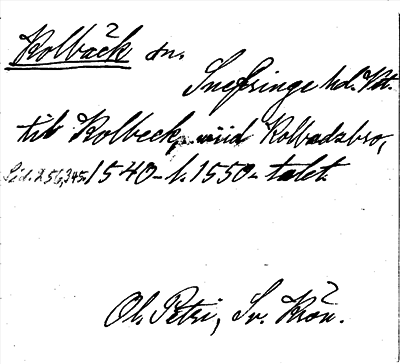 Kolbäck sn.
Snefringe hd. Vt.
till Kolbeck, wiid Kolbadzbro,
Sid. 256, 345. 1540- l. 1550-talet.
Ol. Petri, Sv. Krön.